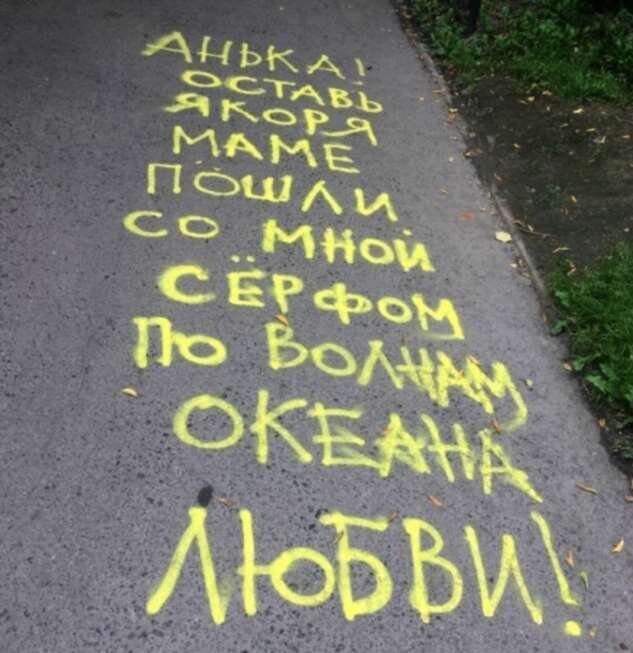 АНЬКА!
ОСТАВЬ
ЯКОРЯ
МАМЕ
ПОШЛИ
СО МНОЙ
СЁРФОМ
ПО ВОЛНАМ
ОКЕАНА
ЛЮБВИ!